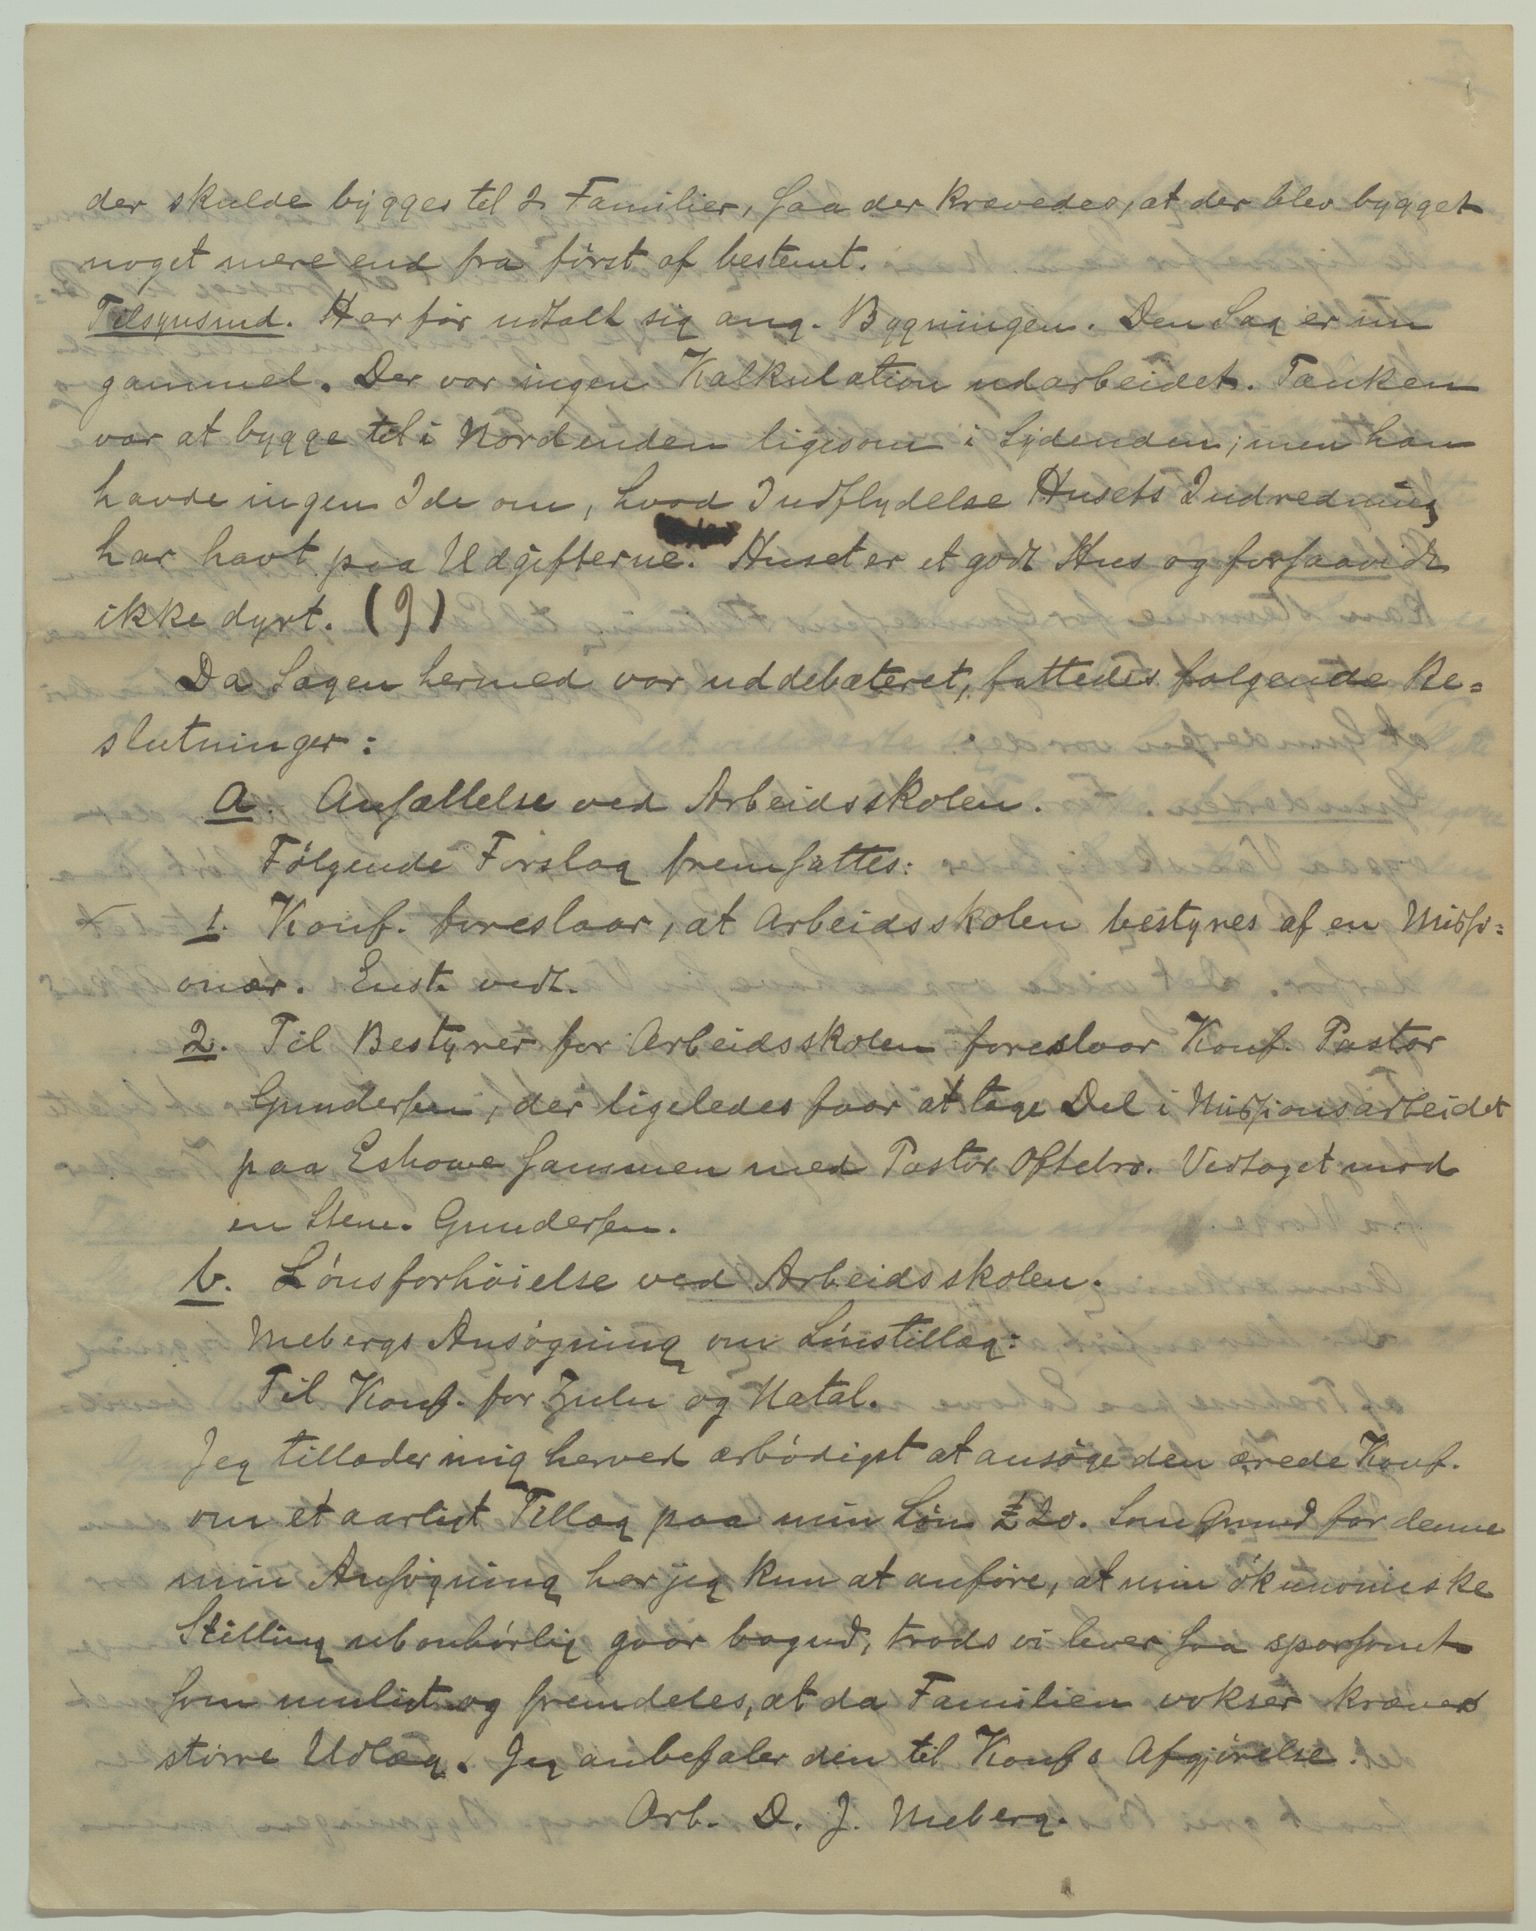 der skulde bygges til 2 Familier, saa der krævedes, at der blev bygget
noget mere end fra først af bestemt.
Tilsynsmd. Har før udtalt sig ang. Bygningen. Den Sag er nu
gammel. Der var ingen Kalkulation udarbeidet. Tanken
var at bygge til i Nordenden ligesom i Sydenden; men han
havde ingen Ide om, hvad Indflydelse Husets Indredning
har havt paa Udgifterne. Huset er et godt Hus og forsaavidt
ikke dyrt. (9)
Da Sagen hermed var uddebateret, fattedes følgende Be=
slutninger:
a. Ansættelse ved Arbeidsskolen.
Følgende Forslag fremsattes:
1. Konf. foreslaar, at Arbeidsskolen bestyres af en Missi=
onær. Enst. vedt.
2. Til Bestyrer for Arbeidsskolen foreslaar Konf. Pastor
Gundersen, der ligeledes faar at tage Del i Missionsarbeidet
paa Eshowe sammen med Pastor Oftebro. Vedtaget mod
en Stem. Gundersen.
b. Lønsforhøielse ved Arbeidsskolen.
Mebergs Ansøgning om Lønstillæg:
Til Konf. for Zulu og Natal.
Jeg tillader mig herved ærbødigst at ansøge den ærede Konf.
om et aarligt Tillæg paa min Løn £20. Som Grund for denne
min Ansøgning har jeg kun at anføre, at min økonomiske
Stilling ubønhørlig gaar bagud, trods vi lever saa sparsomt
som muligt og fremdeles, at da Familien vokser kræves
større Udlæg. Jeg anbefaler den til Konf s Afgjørelse.
Ærb. D. J. Meberg.